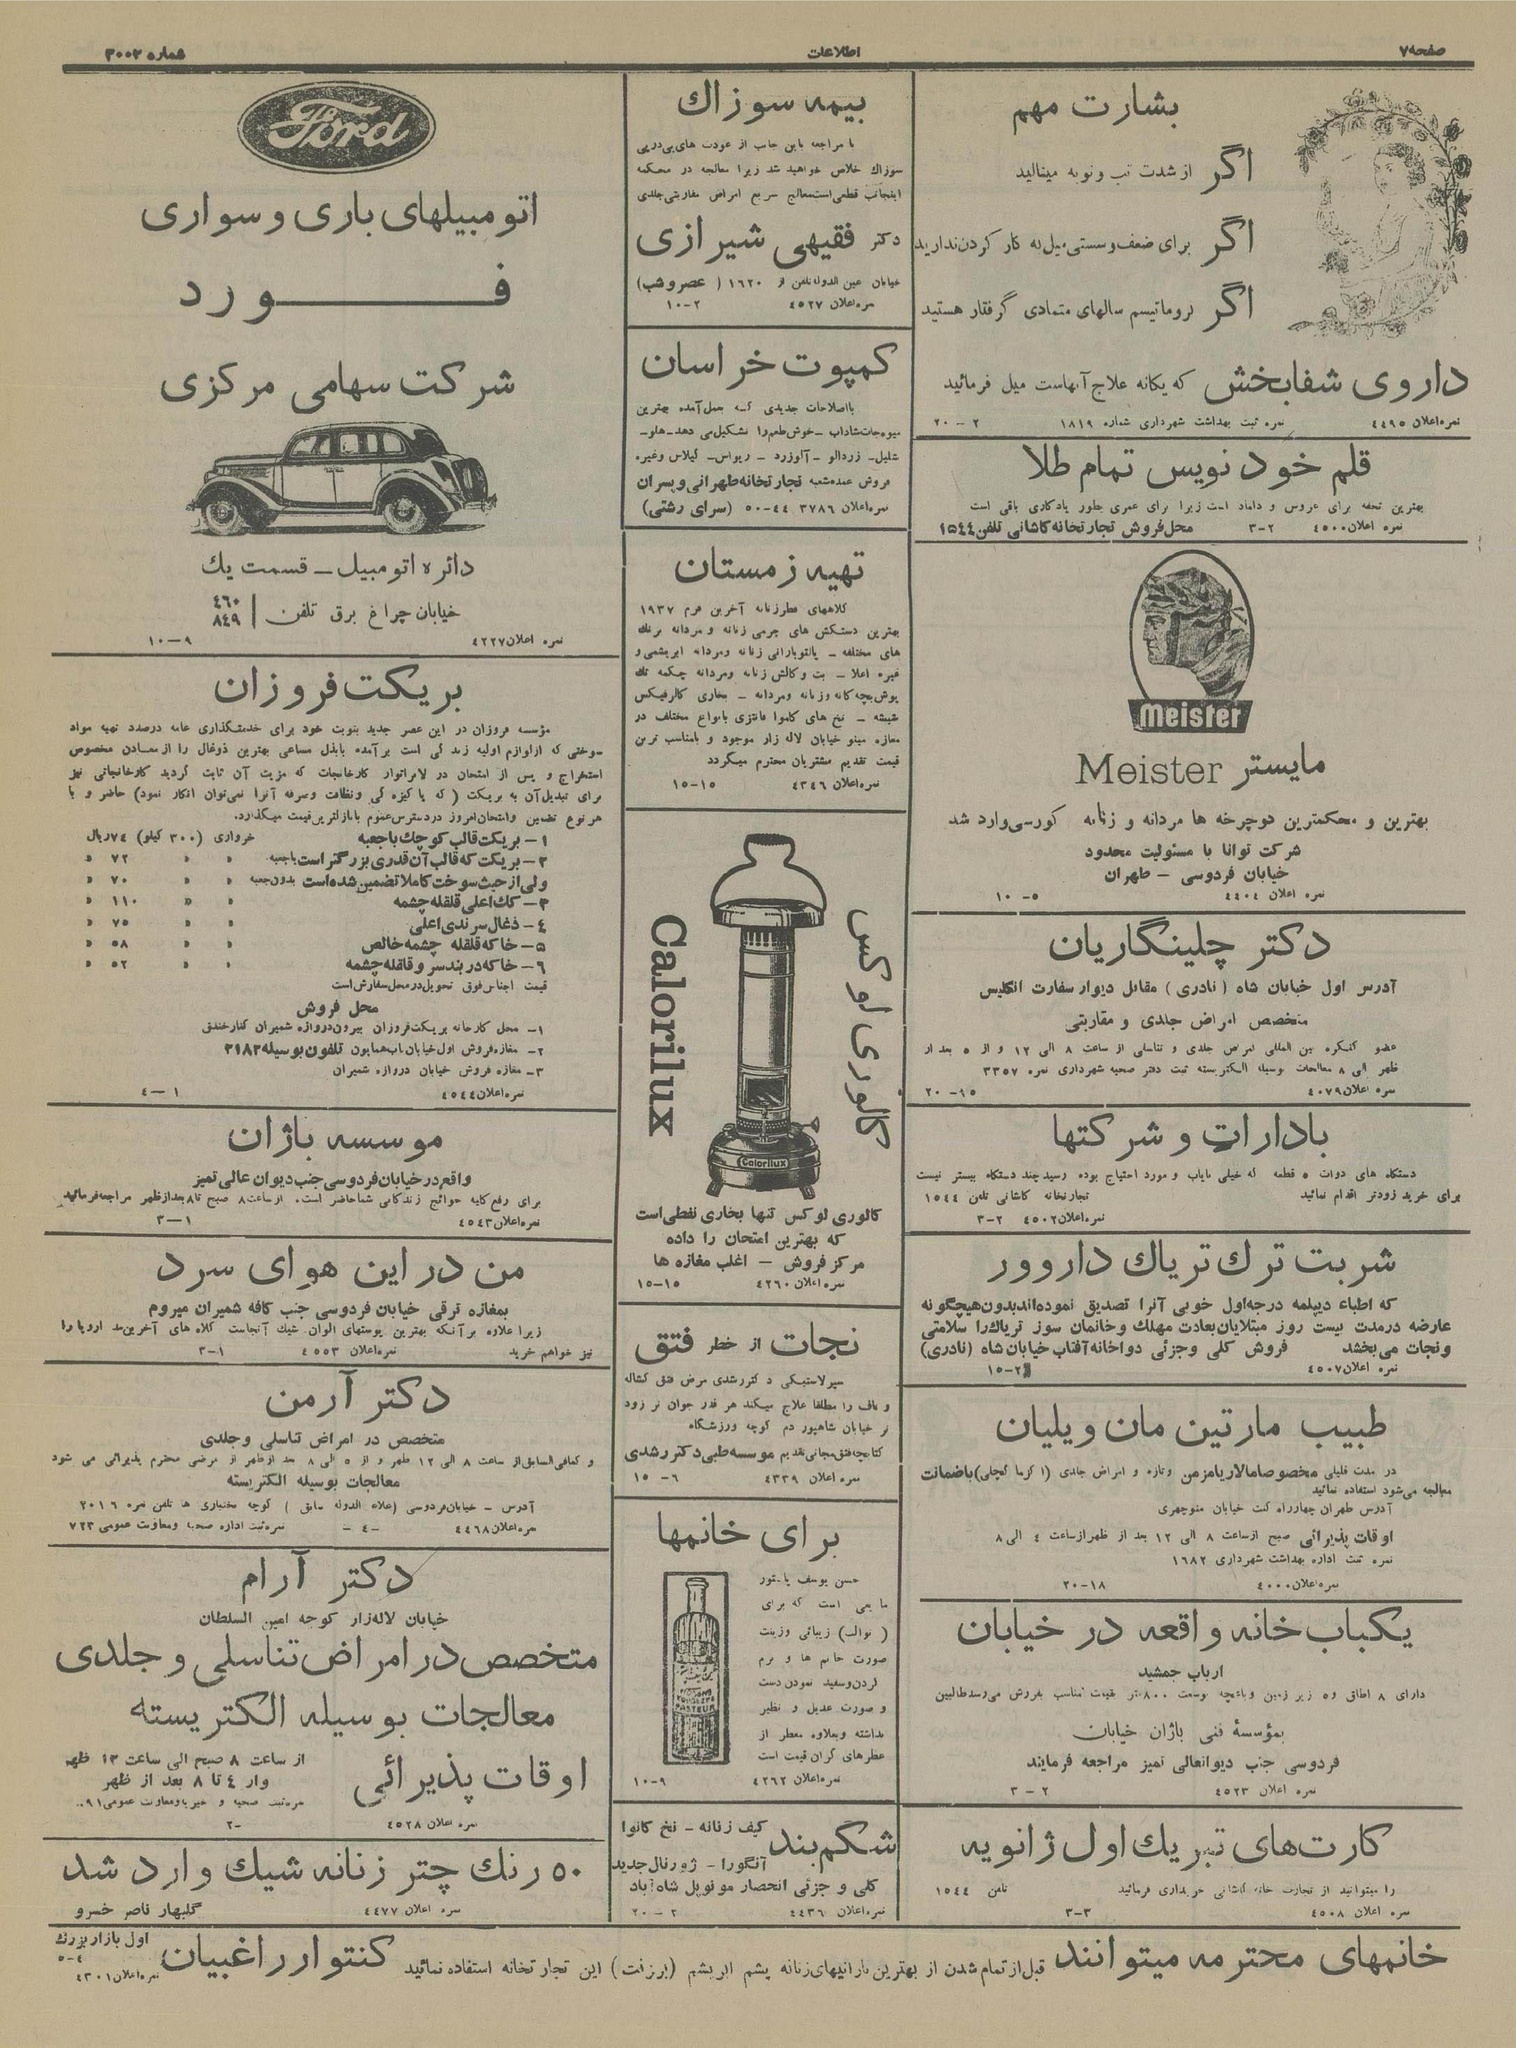 صفحه ۷
اطلاعات
شماره ۳۰۰۲
بشارت مهم
اگر از شدت تب و نوبه مینالید
اگر برای ضعف و سستی میل به کار کردن ندارید
اگر بروماتیسم سالهای متمادی گرفتار هستید
داروی شفابخش که یگانه علاج آنهاست میل فرمائید
نمره اعلان ۴۴۹۵ نمره ثبت بهداشت شهرداری شماره ۱۸۱۹ ۲-۲۰
قلم خود نویس تمام طلا
بهترین تحفه برای عروس و داماد است زیرا برای عمری بطور یادگاری باقی است
نمره اعلان ۴۵۰۰ ۲-۳ محل فروش تجارتخانه کاشانی تلفن ۱۵۴۴
Meister
مایستر Meister
بهترین و محکمترین دوچرخه ها مردانه و زنانه کورسی وارد شد
شرکت توانا با مسئولیت محدود
خیابان فردوسی – طهران
نمره اعلان ۴۴۰۴ ۵-۱۰
دکتر چلینگاریان
آدرس اول خیابان شاه (نادری) مقابل دیوار سفارت انگلیس
متخصص امراض جلدی و مقاربتی
عضو کنگره بین المللی امراض جلدی و تناسلی از ساعت ۸ الی ۱۲ و از ۵ بعد از
ظهر الی ۸ معالجات بوسیله الکتریسته ثبت دفتر صحیه شهرداری نمره ۳۳۵۷
نمره اعلان ۴۰۷۹ ۱۵-۲۰
بادارات و شرکتها
دستگاه های دوات ۵ قطعه که خیلی نایاب و مورد احتیاج بوده رسید چند دستگاه بیشتر نیست
برای خرید زودتر اقدام نمائید تجارتخانه کاشانی تلفن ۱۵۴۴
نمره اعلان ۴۵۰۲ ۲-۳
شربت ترك تریاك داروور
که اطباء دیپلمه درجه اول خوبی آنرا تصدیق نموده اند بدون هیچگونه
عارضه در مدت بیست روز مبتلایان بعادت مهلك و خانمان سوز تریاك را سلامتی
و نجات می بخشد فروش کلی و جزئی دواخانه آفتاب خیابان شاه (نادری)
نمره اعلان ۴۵۰۷ ۲-۱۵
طبیب مارتین مان ویلیان
در مدت قلیلی مخصوصا مالاریا مزمن و تازه و امراض جلدی (اگزما کچلی) با ضمانت
معالجه می شود استفاده نمائید
آدرس طهران چهارراه کنت خیابان منوچهری
اوقات پذیرائی صبح از ساعت ۸ الی ۱۲ بعد از ظهر از ساعت ٤ الی ۸
نمره ثبت اداره بهداشت شهرداری ۱۶۸۲
نمره اعلان ۴۰۰۰ ۱۸-۲۰
یکباب خانه واقعه در خیابان
ارباب جمشید
دارای ۸ اطاق و ۵ زیر زمین و باغچه بوسعت ۸۰۰ متر قیمت مناسب بفروش می رسد طالبین
بمؤسسهٔ فنی باژان خیابان
فردوسی جنب دیوانعالی تمیز مراجعه فرمایند
نمره اعلان ۴۵۲۳ ۲-۳
کارت های تبریك اول ژانویه
را میتوانید از تجارت خانه کاشانی خریداری فرمائید تلفن ۱۵۴۴
نمره اعلان ۴۵۰۸ ۳-۳
بیمه سوزاك
با مراجعه باین جانب از عودت های پی در پی
سوزاك خلاص خواهید شد زیرا معالجه در محکمه
اینجانب قطعی است معالج سریع امراض مقاربتی جلدی
دکتر فقیهی شیرازی
خیابان عین الدوله تلفن از ۱۶۲۰ (عصر و شب)
نمره اعلان ۴۵۲۷ ۲-۱۰
کمپوت خراسان
با اصلاحات جدیدی که بعمل آمده بهترین
میوه جات شاداب – خوش طعم را تشکیل می دهد – هلو –
شلیل – زردالو – آلوزرد – ریواس – گیلاس و غیره
فروش عمده شعبه تجارتخانه طهرانی و پسران
نمره اعلان ۳۷۸۶ ۴۴-۵۰ (سرای رشتی)
تهیه زمستان
کلاههای مطرزنانه آخرین فرم ۱۹۳۷
بهترین دستکش های چرمی زنانه و مردانه برنك
های مختلفه – پالتوبارانی زنانه و مردانه ابریشمی و
غیره اعلا – بت و کالش زنانه و مردانه چکمه تك
پوش بچه گانه و زنانه و مردانه – بخاری کالرفیکس
شیشه – نخ های کاموا فانتزی بانواع مختلف در
مغازه مینو خیابان لاله زار موجود و بامناسب ترین
قیمت تقدیم مشتریان محترم میگردد
نمره اعلان ۴۳۴۶ ۱۵-۱۵
کالوری لوکس
Calorilux
Calorilux
کالوری لوکس تنها بخاری نفطی است
که بهترین امتحان را داده
مرکز فروش – اغلب مغازه ها
نمره اعلان ۴۲۶۰ ۱۵-۱۵
نجات از خطر فتق
سیر لاستیکی دکتر رشدی مرض فتق کشاله
و ناف را مطلقا علاج میکند هر قدر جوان تر زود
تر خیابان شاهپور دم کوچه ورزشگاه
کتابچه فتق مجانی تقدیم موسسه طبی دکتر رشدی
نمره اعلان ۴۳۳۹ ۶-۱۵
برای خانمها
حسن یوسف پاستور
مایعی است که برای
(توالت) زیبائی وزینت
صورت خانم ها و نرم
کردن و سفید نمودن دست
و صورت عدیل و نظیر
نداشته و بعلاوه معطر از
عطرهای گران قیمت است
نمره اعلان ۴۲۶۲ ۹-۱۰
شکم بند
کیف زنانه – نخ کاموا
آنگورا – ژورنال جدید
کلی و جزئی انحصار مونوپل شاه آباد
نمره اعلان ۴۴۳۶ ۲-۲۰
Ford
اتومبیلهای باری و سواری
فورد
شرکت سهامی مرکزی
دائره اتومبیل – قسمت یك
خیابان چراغ برق تلفن ٤٦٠
٨٤٩
نمره اعلان ۴۲۲۷ ۹-۱۰
بریکت فروزان
مؤسسه فروزان در این عصر جدید بنوبت خود برای خدمتگذاری عامه درصدد تهیه مواد
سوختی که از لوازم اولیه زندگی است برآمده با بذل مساعی بهترین ذوغال را از معادن مخصوص
استخراج و پس از امتحان در لابراتوار کارخانجات که مزیت آن ثابت گردید کارخانجاتی نیز
برای تبدیل آن به بریکت (که پاکیزه گی و نظافت و صرفه آنرا نمی توان انکار نمود) حاضر و با
هر نوع تضمین و امتحان امروز در دسترس عموم با نازلترین قیمت میگذارد.
۱– بریکت قالب کوچك با جعبه خرواری (۳۰۰ کیلو) ۷۴ ریال
۲– بریکت که قالب آن قدری بزرگتر است با جعبه » » ۷۲ »
ولی از حیث سوخت کاملا تضمین شده است بدون جعبه » » ۷۰ »
۳– کك اعلی قلقله چشمه » » ۱۱۰ »
٤– ذغال سرندی اعلی » » ۷۵ »
۵– خاکه قلقله چشمه خالص » » ۵۸ »
۶– خاکه در بند سر و قلقله چشمه » » ۵۲ »
قیمت اجناس فوق تحویل در محل سفارش است
محل فروش
۱– محل کارخانه بریکت فروزان بیرون دروازه شمیران کنار خندق
۲– مغازه فروش اول خیابان باب همایون تلفون بوسیله ۳۱۸۳
۳– مغازه فروش خیابان دروازه شمیران
نمره اعلان ۴۵۴۴ ۱-۴
موسسه باژان
واقع در خیابان فردوسی جنب دیوان عالی تمیز
برای رفع کلیه حوائج زندگانی شما حاضر است. از ساعت ۸ صبح تا ۸ بعد از ظهر مراجعه فرمائید
نمره اعلان ۴۵۴۳ ۱-۳
من در این هوای سرد
بمغازه ترقی خیابان فردوسی جنب کافه شمیران میروم
زیرا علاوه بر آنکه بهترین پوستهای الوان شیك آنجاست کلاه های آخرین مد اروپا را
نیز خواهم خرید نمره اعلان ۴۵۵۳ ۱-۳
دکتر آرمن
متخصص در امراض تناسلی و جلدی
و کمافی السابق از ساعت ۸ الی ۱۲ ظهر و از ۵ الی ۸ بعد از ظهر از مرضی محترم پذیرائی می شود
معالجات بوسیله الکتریسته
آدرس – خیابان فردوسی (علاء الدوله سابق) کوچه بختیاری ها تلفن نمره ۲۰۱۶
نمره اعلان ۴۴۶۸ -۴- نمره ثبت اداره صحیه و معاونت عمومی ۷۲۳
دکتر آرام
خیابان لاله زار کوچه امین السلطان
متخصص در امراض تناسلی و جلدی
معالجات بوسیله الکتریسته
اوقات پذیرائی
از ساعت ۸ صبح الی ساعت ۱۲ ظهر
واز ٤ تا ۸ بعد از ظهر
نمره ثبت صحیه و خیریه و معاونت عمومی
نمره اعلان ۴۵۲۸ ۲-
۵۰ رنك چتر زنانه شیك وارد شد
نمره اعلان ۴۴۷۷ گلبهار ناصر خسرو
خانمهای محترمه میتوانند قبل از تمام شدن از بهترین بارانیهای زنانه پشم ابریشم (برزنت) این تجارتخانه استفاده نمائید کنتوار راغبیان اول بازار بزرك
نمره اعلان ۴۳۰۱ ۴-۵